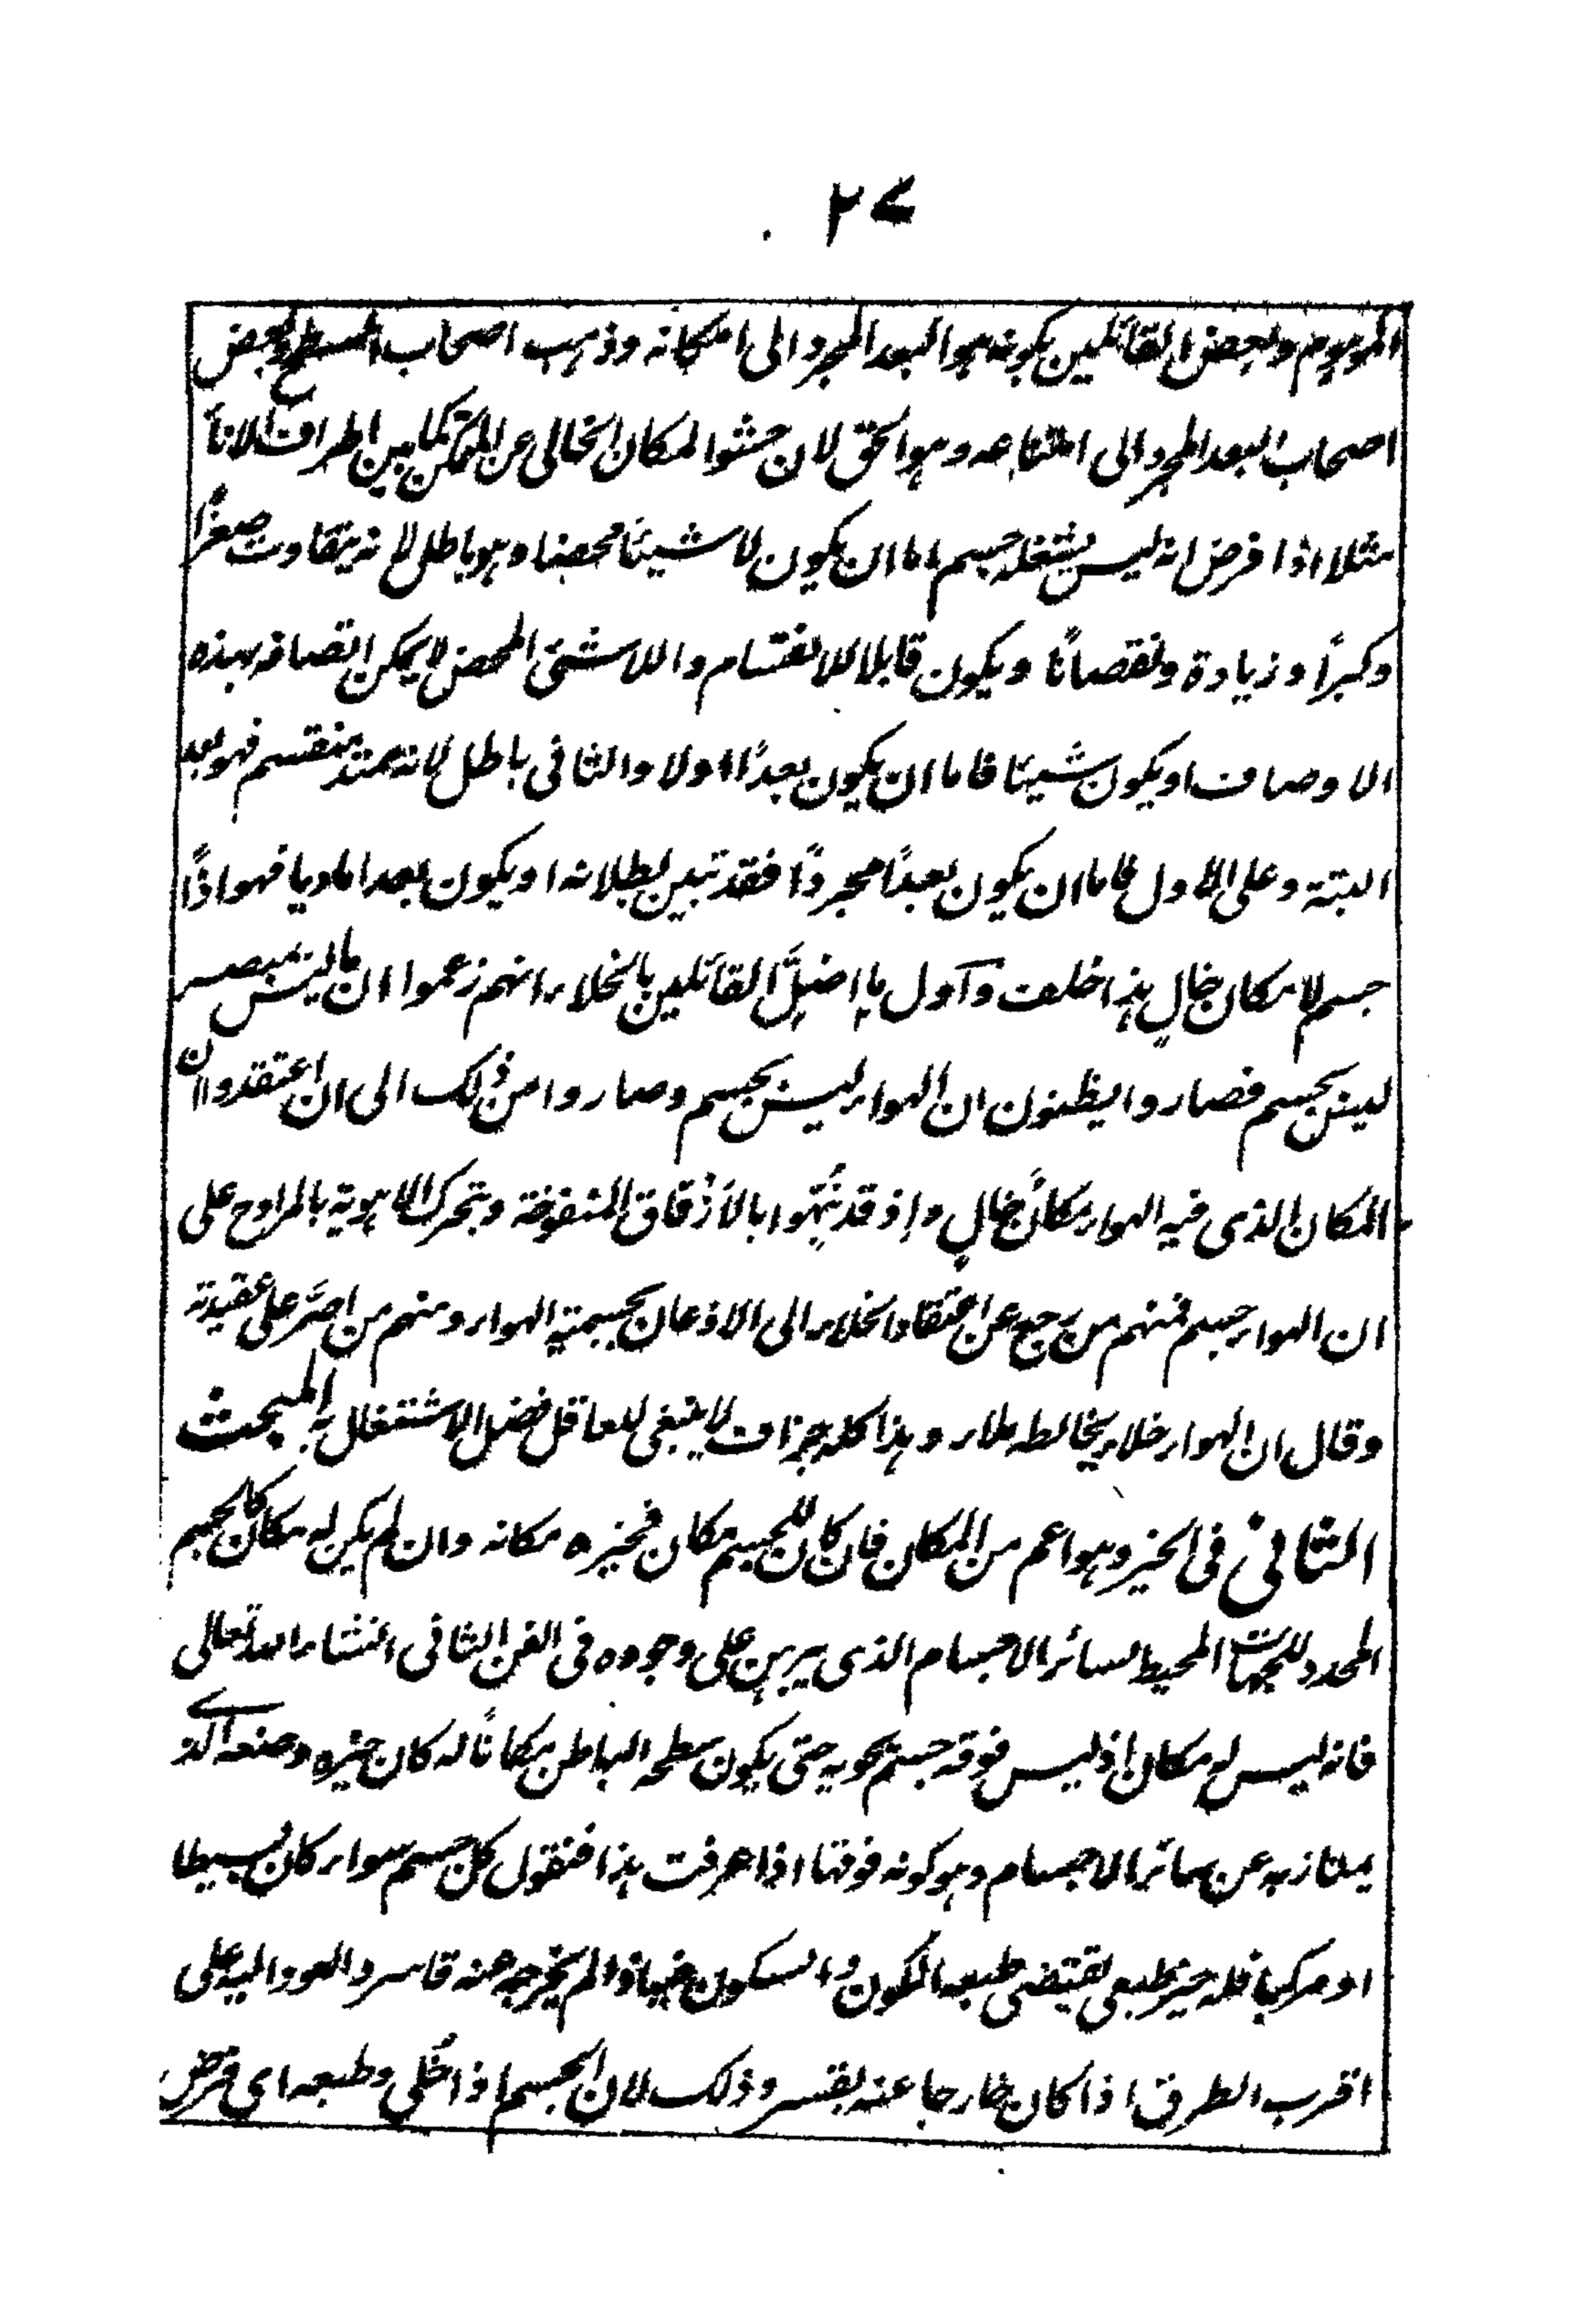 ٢٧
الموہوم وبعض القائلين بكونہ ہو البعد المجرد الى امكانہ وذہب اصحاب السطح وبعض
اصحاب البعد المجرد الى امتناعہ وہو الحق لان حشو المكان الخالى عن المتمكن كما بين اطراف الاناء
مثلا اذا فرض انہ ليس يشغلہ جسم اما ان يكون لا شيئًا محضا وہو باطل لانہ يتفاوت صغرًا
وكبرًا وزيادة ونقصانًا ويكون قابلا للانقسام واللاشئ المحض لا يمكن اتصافہ بہذہ
الاوصاف او يكون شيئًا فاما ان يكون بعدًا اولا والثانى باطل لانہ ممتد منقسم فہو بعد
البتة وعلى الاول فاما ان يكون بعدًا مجردًا فقد تبين بطلانہ او يكون بعدا ماديا فہو اذًا
جسم لا مكان خالٍ ہذا خلف وآول ما اضلّ القائلين بالخلاء انہم زعموا ان ما ليس بمبصر
ليس بجسم فصاروا يظنون ان الہواء ليس بجسم وصاروا من ذلك الى ان اعتقدوا ان
المكان الذى فيہ الہواء مكانٌ خالٍ واذ قد نُبّہوا بالأزقاق المنفوخة وبتحرك الاہوية بالمراوح على
ان الہواء جسم فمنہم من رجع عن اعتقاد الخلاء الى الاذعان بجسمية الہواء ومنہم من اصرّ على عقيدتہ
وقال ان الہواء خلاء يخالطہ ملاء وہذا كلہ جزاف لا ينبغى للعاقل فضل الاشتغال بہ المبحث
الثانى فى الحيز وہو اعم من المكان فان كان للجسم مكان فحيزہ مكانہ وان لم يكن لہ مكان كالجسم
المحدد للجہات المحيط لسائر الاجسام الذى يبرہن على وجودہ فى الفن الثانى انشاء اللہ تعالى
فانہ ليس لہ مكان اذ ليس فوقہ جسم يحويہ حتى يكون سطحہ الباطن مكانًا لہ كان حيزہ وضعہ الذے
يمتاز بہ عن سائر الاجسام وہو كونہ فوقہا اذا عرفت ہذا فنقول كل جسم سواء كان بسيطا
او مركبا فلہ حيز طبعى يقتضى طبعہ الكون والسكون فيہ اذا لم يخرجہ عنہ قاسر والعود اليہ على
اقرب الطرق اذا كان خارجا عنہ بقسر وذلك لان الجسم اذا خُلى وطبعہ اى فرض